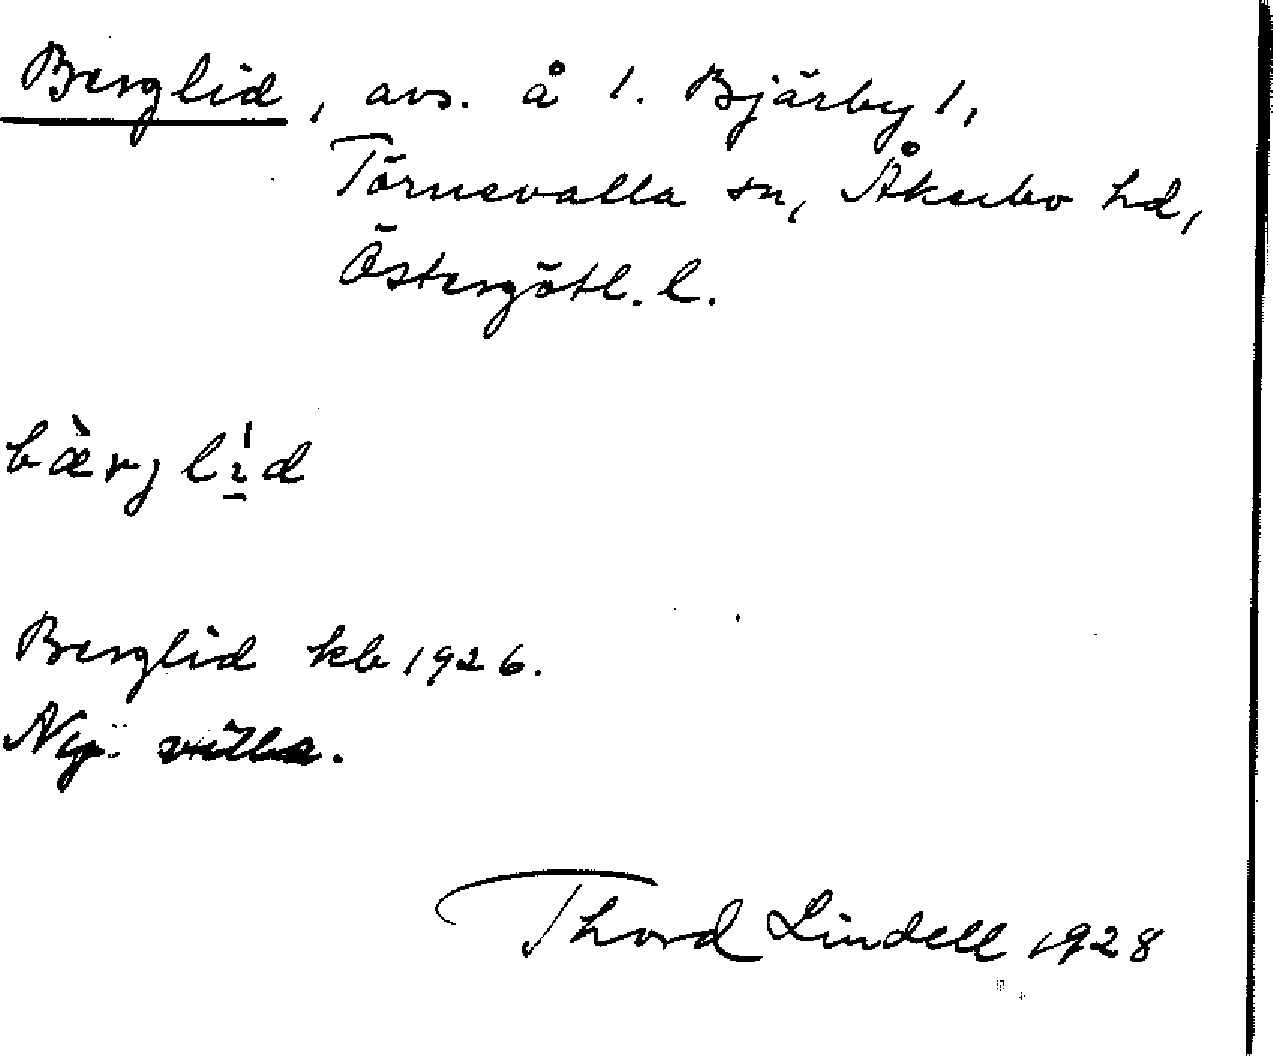 Berglid, avs. å 1. Bjärby 1,
Törnevalla sn, Åkerbo hd,
Östergötl. l.
bæ̀rj lı̍d
Berglid kb 1926.
Ny villa.
Thord Lindell 1928